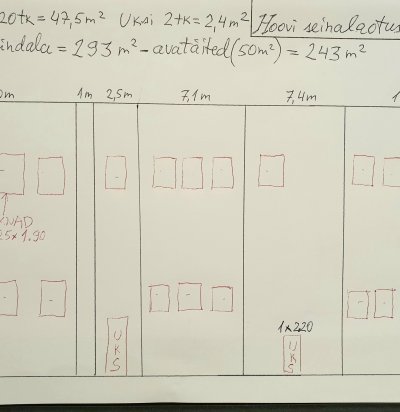 20tk = 47,5m² UKSi 2tk = 2,4m² Hoovi seinalaotus
indala = 293 m² - avatäited (50m²) = 243 m²
0m 1m 2,5m 7,1m 7,4m 1
KNAD
25 x 1.90
1x2.20
UKS
UKS